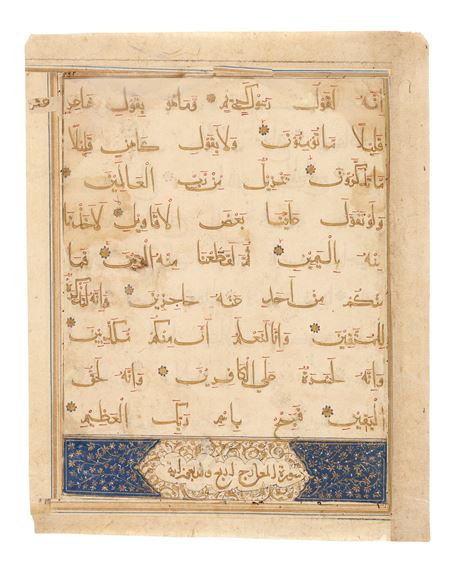 عشر
إنه لقول رسول كريم وما هو بقول شاعر
قليلا ما تؤمنون ولا بقول كاهن قليلا
ما تذكرون تنزيل من رب العالمين
ولو تقول علينا بعض الأقاويل لأخذنا
منه باليمين ثم لقطعنا منه الوتين فما
منكم من أحد عنه حاجزين وإنه لتذكرة
للمتقين وإنا لنعلم أن منكم مكذبين
وإنه لحسرة على الكافرين وإنه لحق
اليقين فسبح باسم ربك العظيم
سورة المعارج اربع واربعون اية